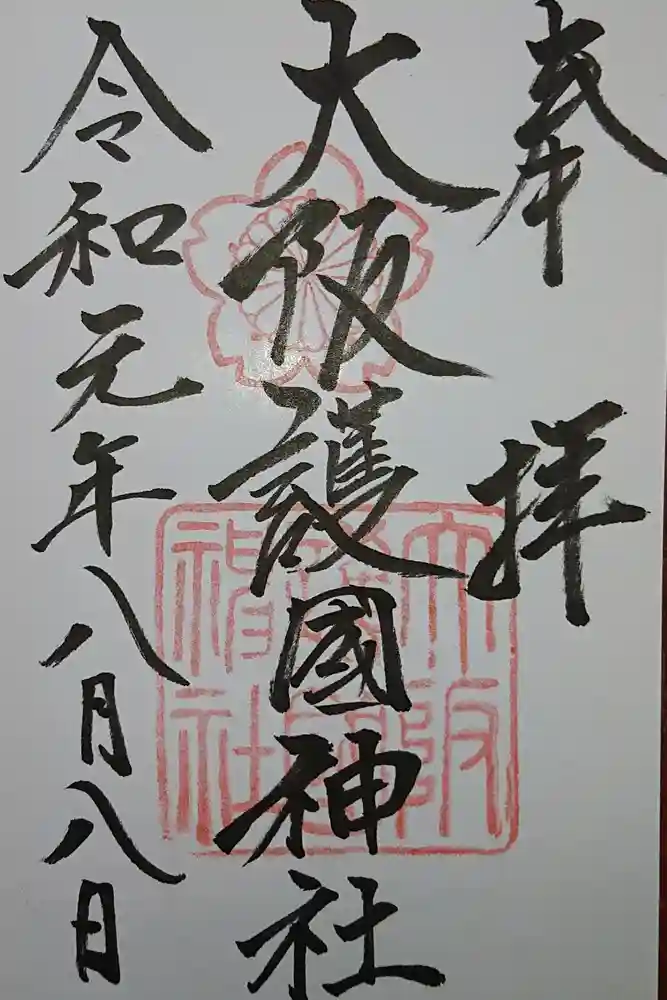 奉拝
大阪護國神社
令和元年八月八日
大阪
護國
神社